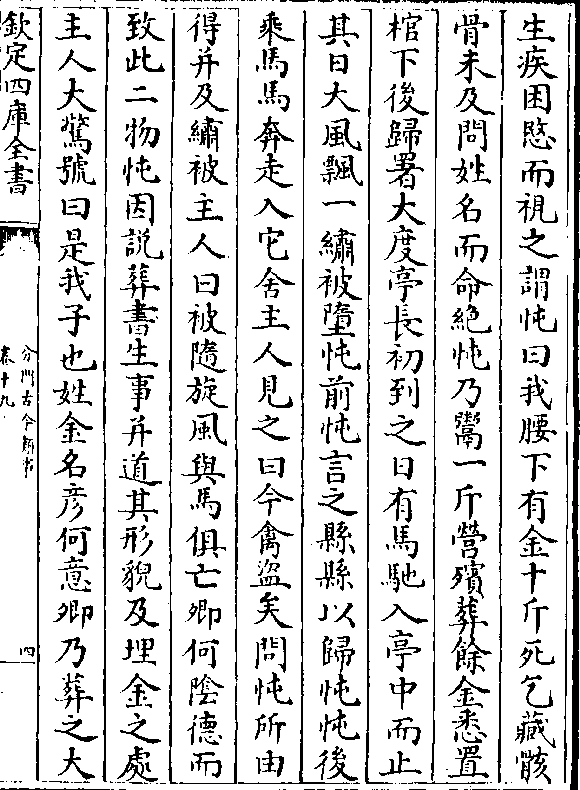 生疾困愍而視之謂忳曰我腰下有金十斤死乞藏骸
骨未及問姓名而命絶忳乃鬻一斤營殯葬餘金悉置
棺下後歸署大度亭長初到之日有馬馳入亭中而止
其日大風飄一繡被墮忳前忳言之縣縣以歸忳忳後
乘馬馬奔走入它舍主人見之曰今禽盜矣問忳所由
得并及繡被主人曰被隨旋風與馬俱亡卿何陰德而
致此二物忳因説葬書生事并道其形貌及埋金之處
主人大驚號曰是我子也姓金名彦何意卿乃葬之大
欽定四庫全書
分門古今類事
卷十九
四